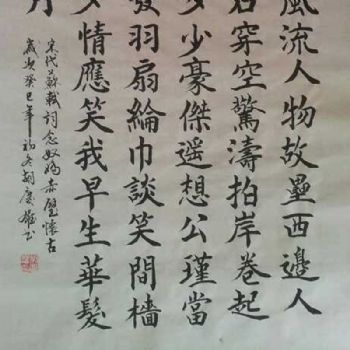 風流人物故壘西邊人
石穿空驚濤拍岸卷起
多少豪傑遥想公瑾當
發羽扇綸巾談笑間檣
多情應笑我早生華髮
月
宋代蘇軾詞念奴嬌赤壁懷古
歲次癸巳年初冬胡慶